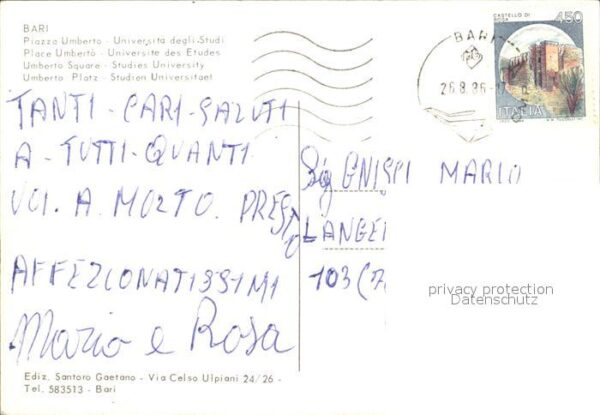 BARI
Piazza Umberto - Università degli Studi
Place Umberto - Universite des Etudes
Umberto Square - Studies University
Umberto Platz - Studien Universitaet
CASTELLO DI
450
BARI
26.8.86
ITALIA
TANTI - CARI - SALUTI
A - TUTTI - QUANTI
VOI. A MOLTO. PRESTO
AFFEZIONATISSIMI
Mario e Rosa
Sig GNISPI MARIO
LANGE
103
privacy protection
Datenschutz
Ediz. Santoro Gaetano - Via Celso Ulpiani 24/26 -
Tel. 583513 - Bari